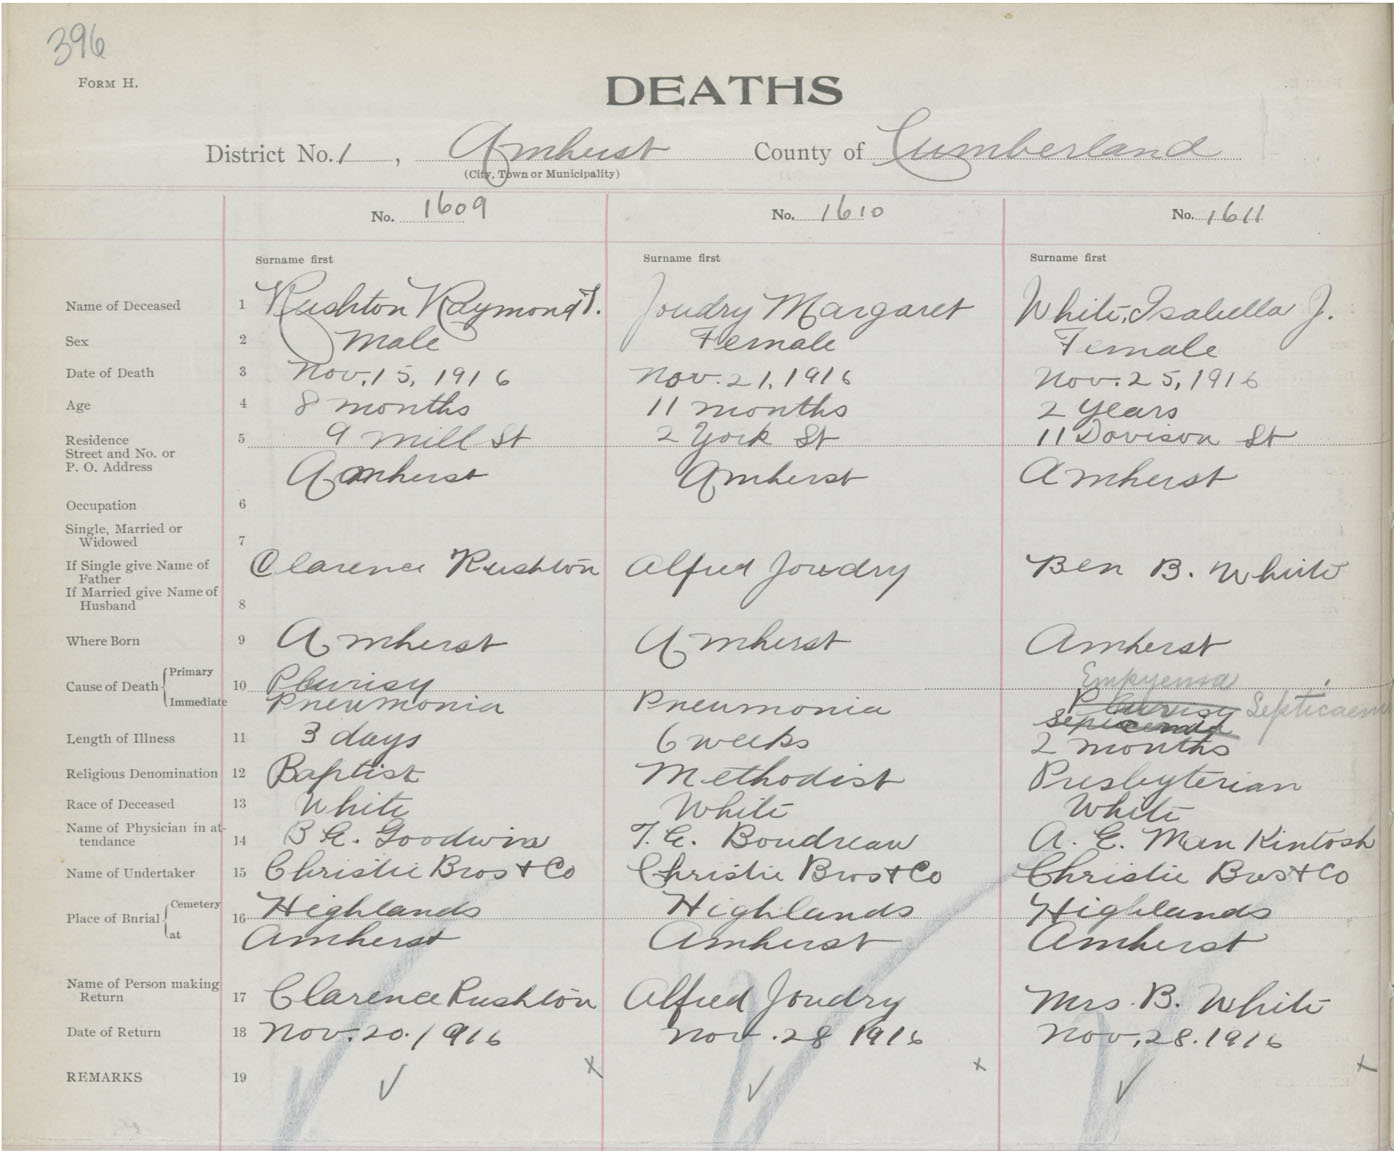 396
FORM H.
DEATHS
District No. 1, Amherst County of Cumberland
(City, Town or Municipality)
No. 1609 No. 1610 No. 1611
Surname first Surname first Surname first
Name of Deceased 1 Rushton Raymond T. Joudry Margaret White, Isabella J.
Sex 2 Male Female Female
Date of Death 3 Nov. 15, 1916 Nov. 21, 1916 Nov. 25, 1916
Age 4 8 months 11 months 2 years
Residence 5 9 Mill St 2 York St 11 Davison St
Street and No. or
P. O. Address Amherst Amherst Amherst
Occupation 6
Single, Married or
Widowed 7
If Single give Name of Clarence Rushton Alfred Joudry Ben B. White
Father
If Married give Name of
Husband 8
Where Born 9 Amherst Amherst Amherst
Cause of Death Primary 10 Pleurisy Empyema
Immediate Pneumonia Pneumonia Pleurisy Septicaem
Length of Illness 11 3 days 6 weeks 2 months
Religious Denomination 12 Baptist Methodist Presbyterian
Race of Deceased 13 White White White
Name of Physician in at-
tendance 14 B E. Goodwin T. E. Boudreau A. E. MacKintosh
Name of Undertaker 15 Christie Bros + Co Christie Bros + Co Christie Bros + Co
Place of Burial Cemetery 16 Highlands Highlands Highlands
at Amherst Amherst Amherst
Name of Person making
Return 17 Clarence Rushton Alfred Joudry Mrs. B. White
Date of Return 18 Nov. 20. 1916 Nov. 28 1916 Nov, 28. 1916
REMARKS 19 ✓ x ✓ x ✓ x